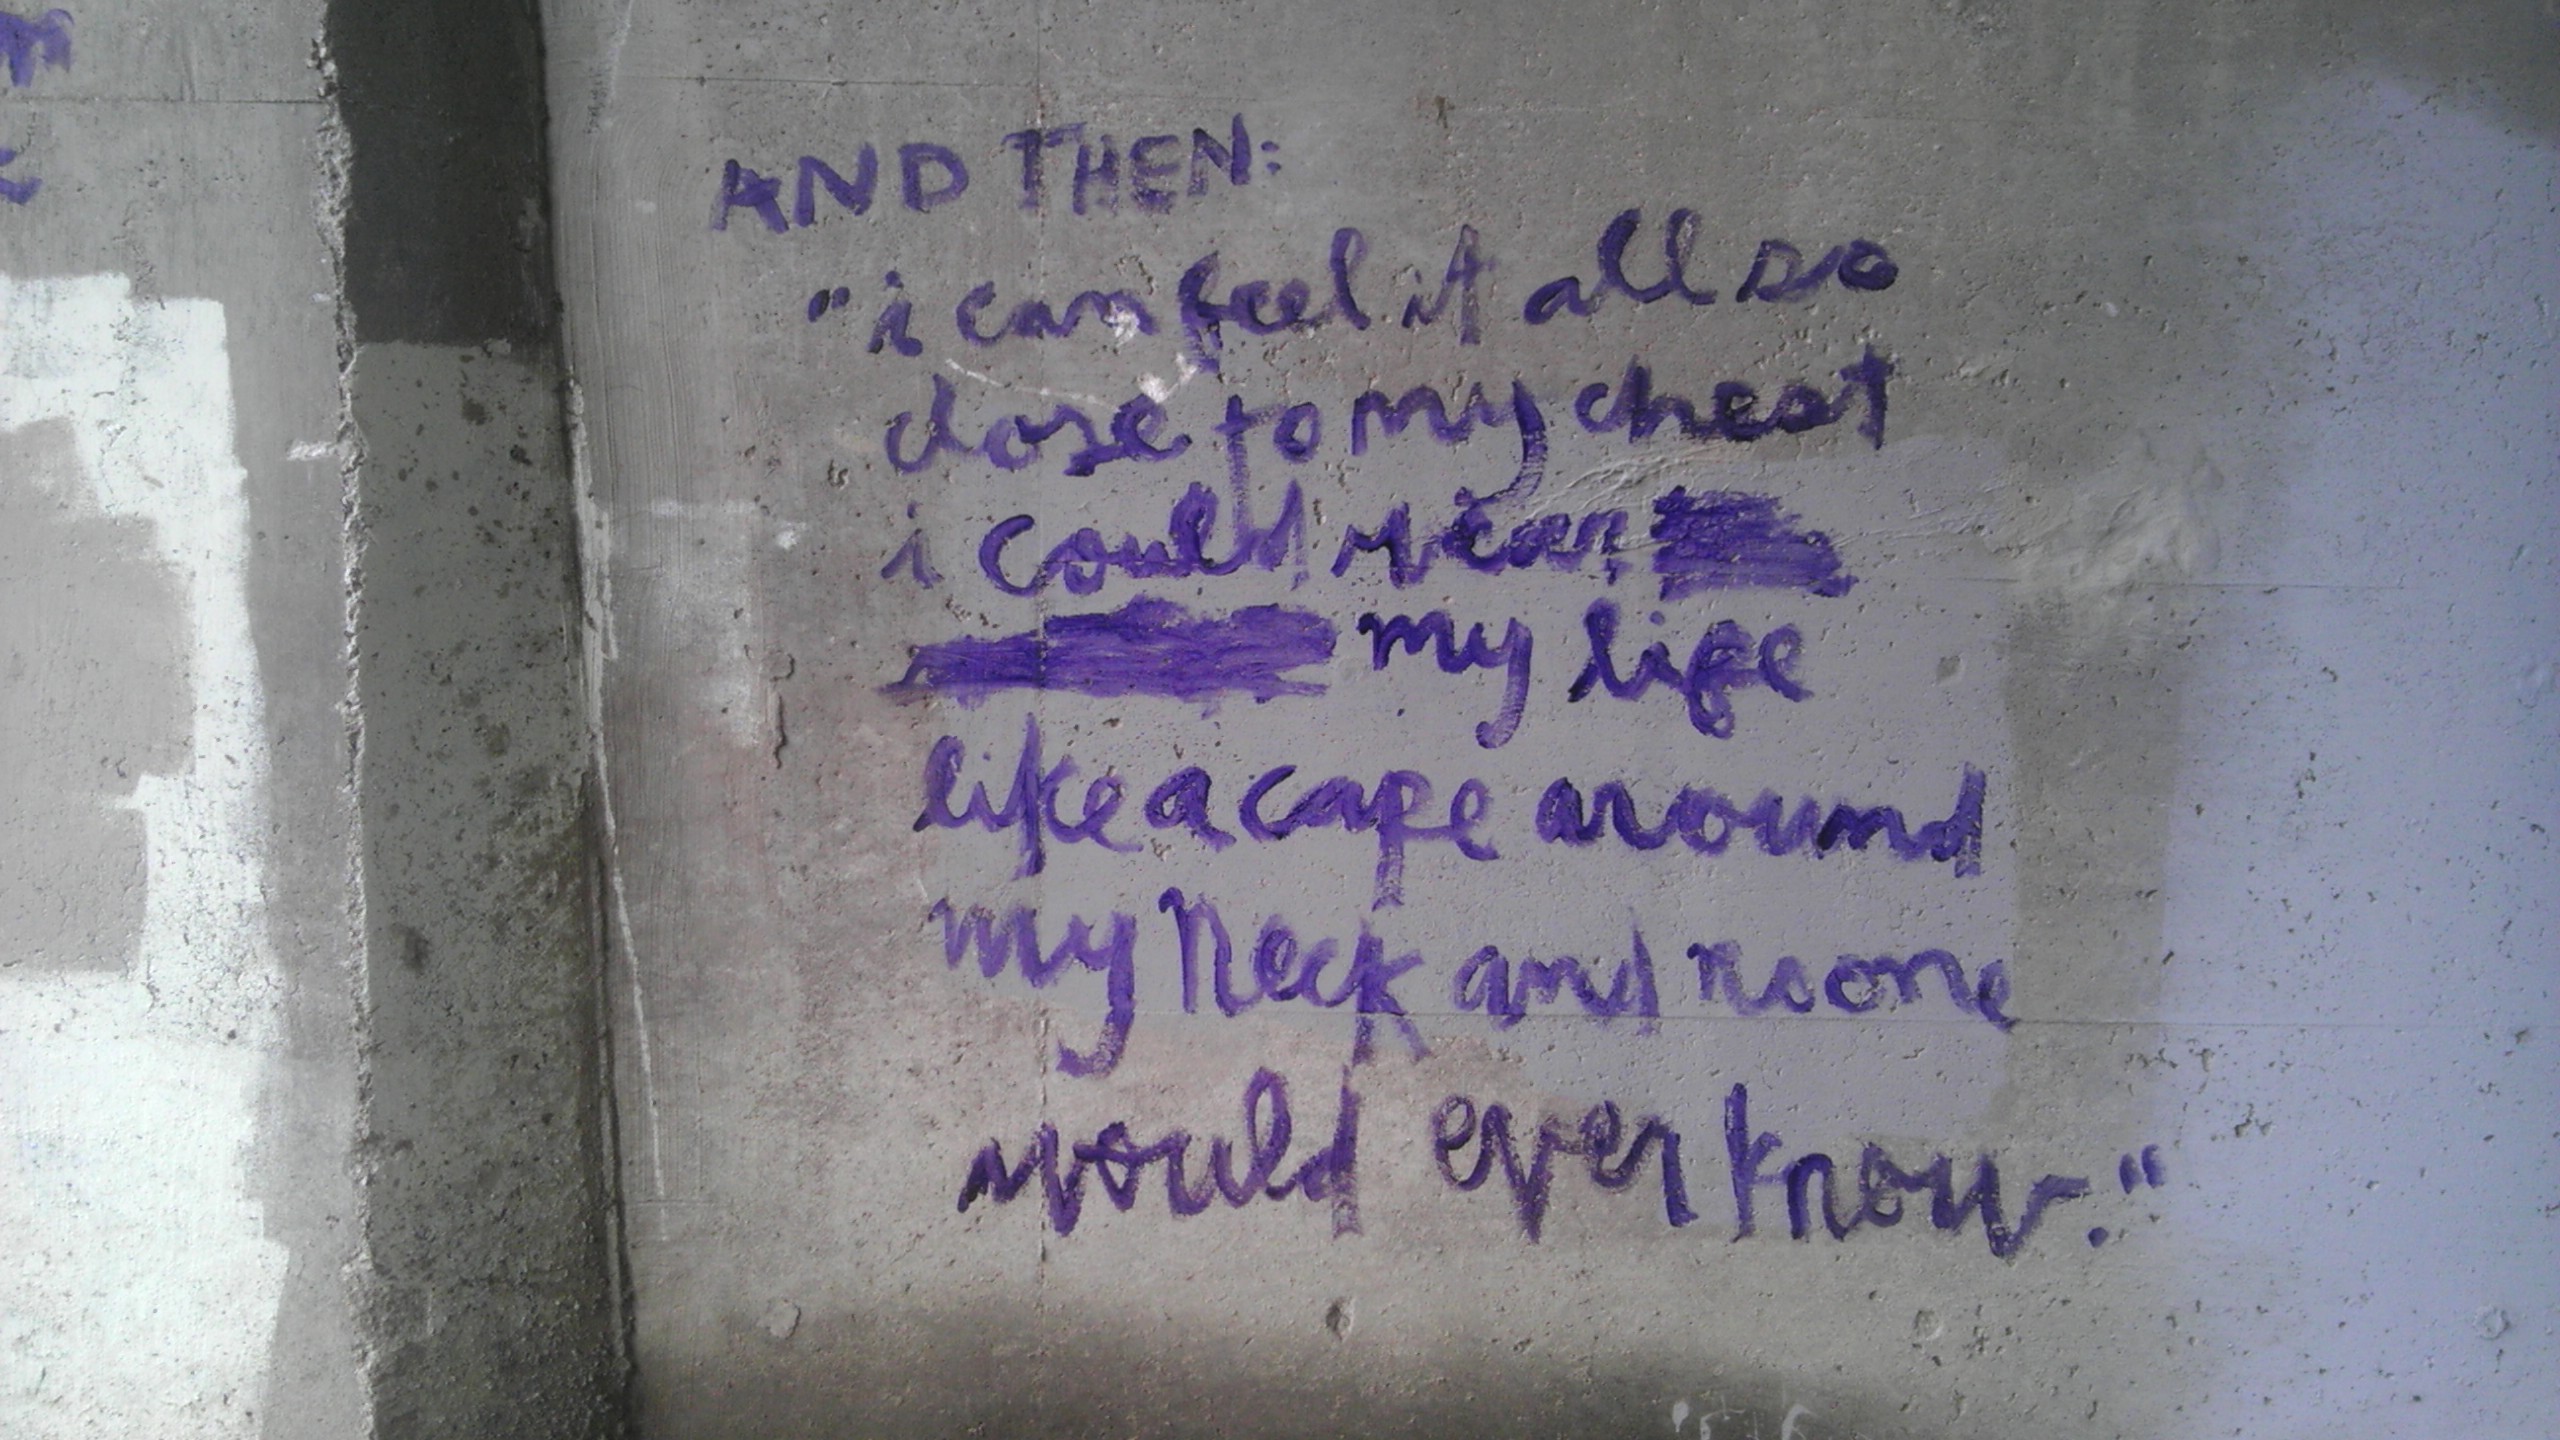 AND THEN:
"i can feel it all so
close to my chest
i could wear
my life
like a cape around
my neck and no one
would ever know."